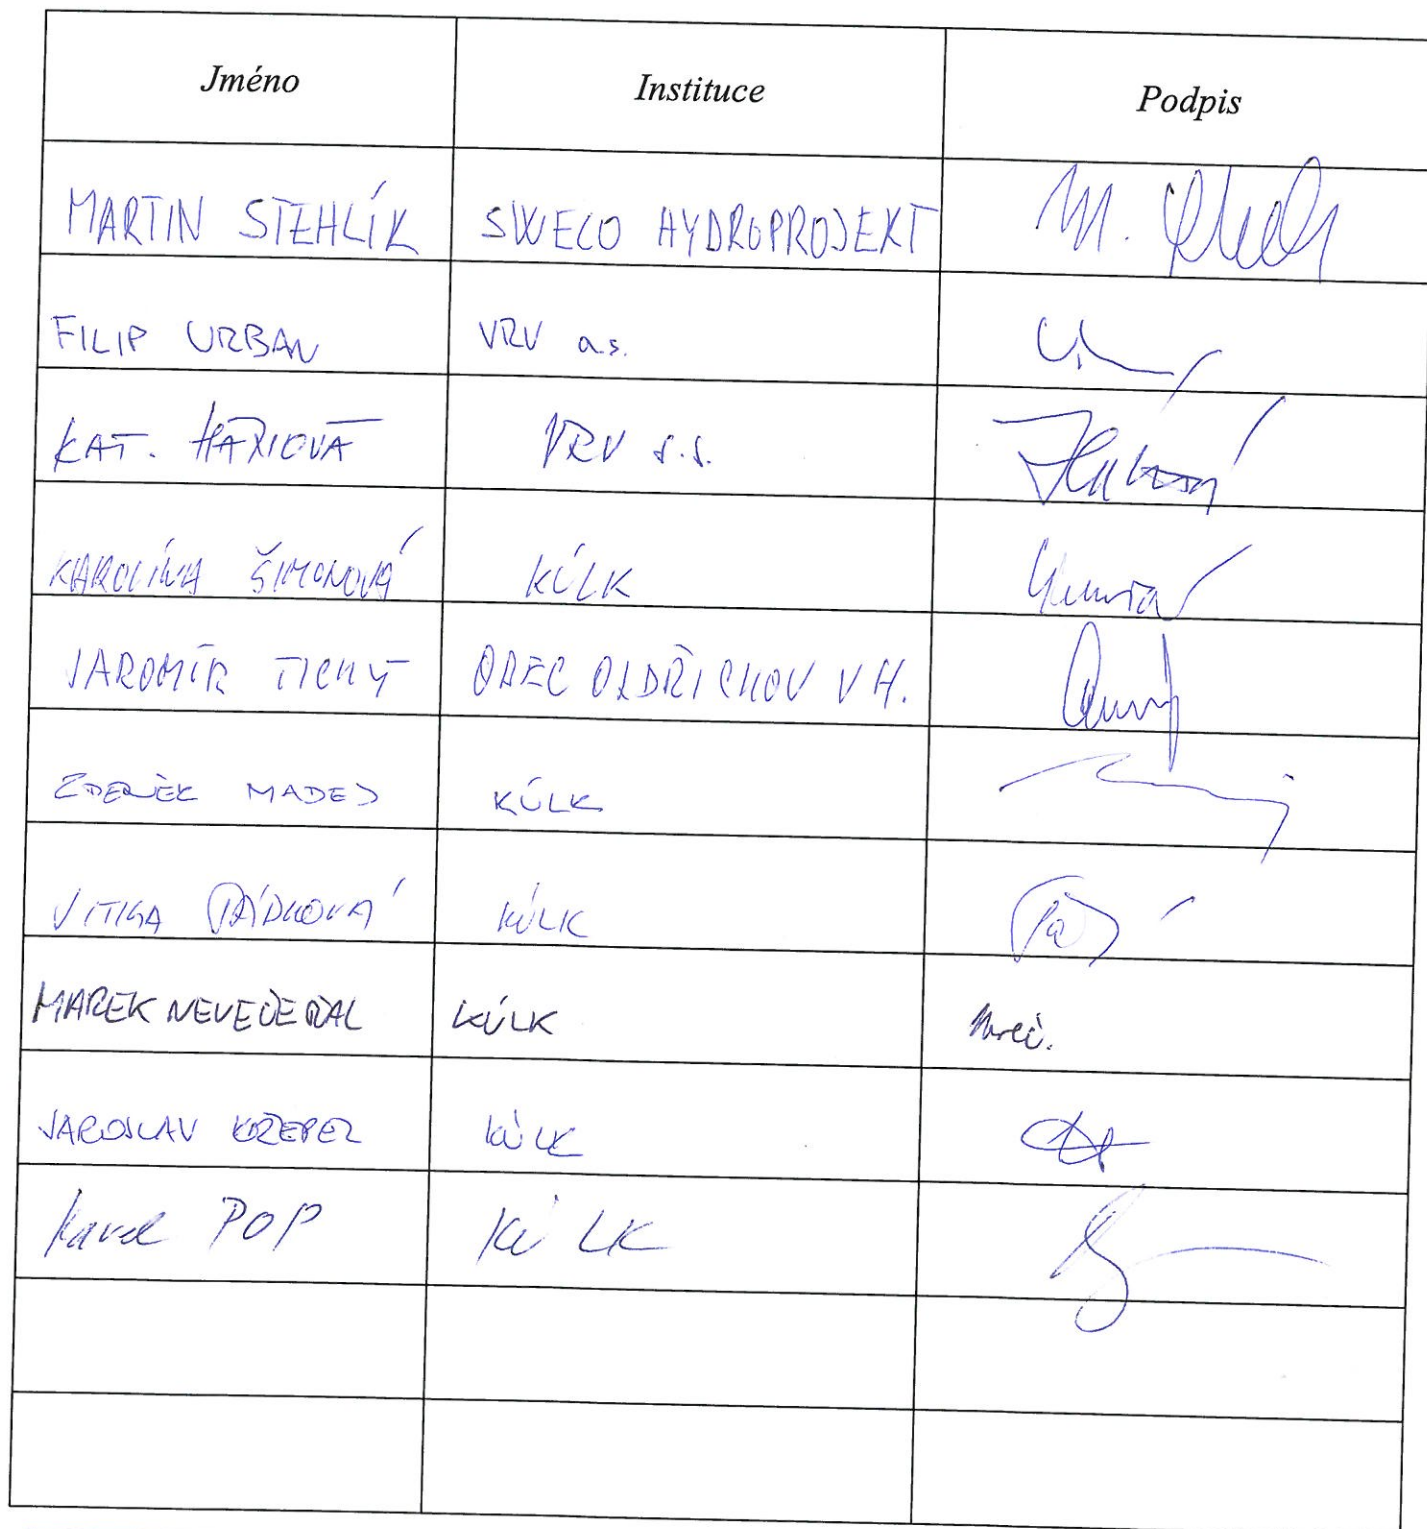 Jméno Instituce Podpis
MARTIN STEHLÍK SWECO HYDROPROJEKT
FILIP URBAN VRV a.s.
KAT. VRV a.s.
KAROLÍNA ŠIMONOVÁ KÚLK
JAROMÍR TICHÝ OBEC OLDŘICHOV V H.
ZDENĚK MADEJ KÚLK
KÚLK
MAREK NEVEČEŘAL KÚLK
JAROSLAV KÚLK
Karel POP KÚ LK